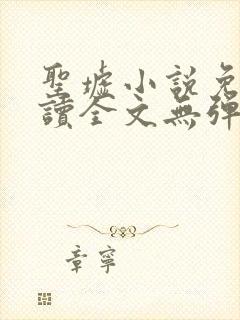 聖墟小說免
讀全文無彈
章寧